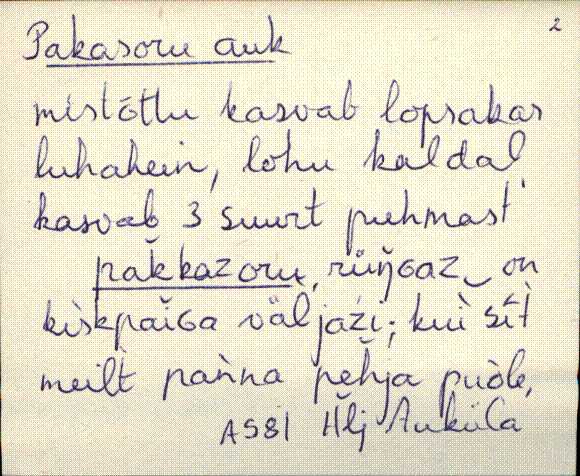 2
Pakasoru auk
mistõttu kasvab lopsakas
luhahein, lohu kaldal
kasvab 3 suurt puhmast
pakkazoru,
kiskpaiGa väljaži; kui sìt
meilt pańna pehja puole,
AS81 Hlj